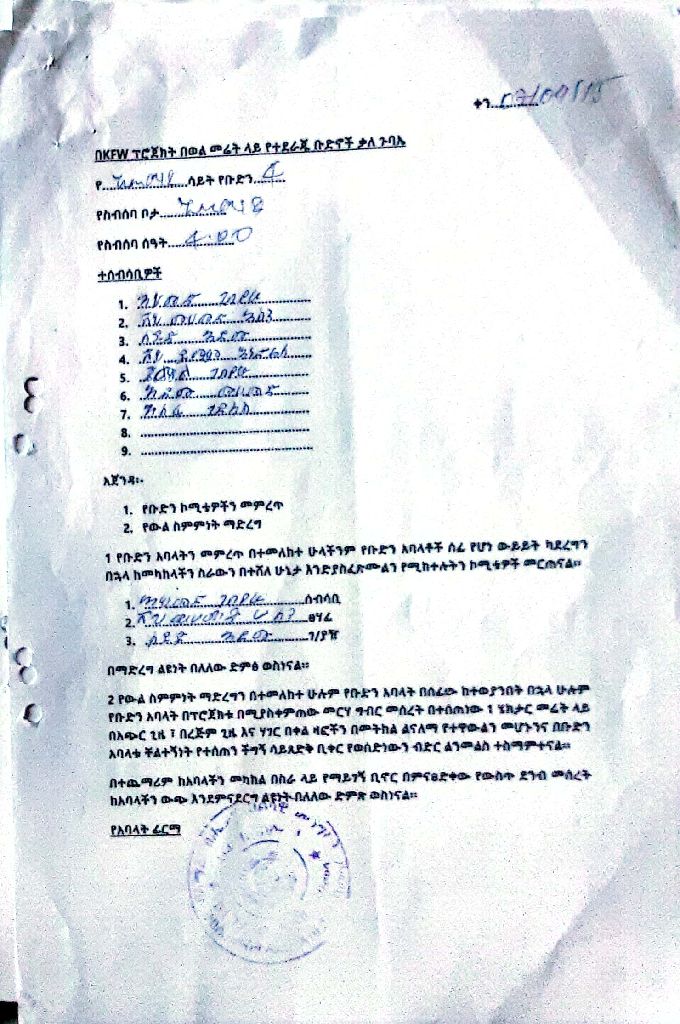 ቀን 07/09/15
በKFW ፕሮጀክት በወል መሬት ላይ የተደራጁ ቡድኖች ቃለ ጉባኤ
የ.................ሳይት የቡድን 4
የስብሰባ ቦታ
የስብሰባ ሰዓት 4:00
ተሰብሳቢዎች
1. አህመድ
2. ሼህ መሀመድ ሁሴን
3. ሰይድ እድሙ
4. ሼህ
5.
6. እድሙ መሀመድ
7.
8.
9.
አጀንዳ፡-
1. የቡድን ኮሚቴዎችን መምረጥ
2. የውል ስምምነት ማድረግ
1 የቡድን አባላትን መምረጥ በተመለከተ ሁላችንም የቡድን አባላቶች ሰፊ የሆነ ውይይት ካደረግን
በኋላ ከመካከላችን ስራውን በተሻለ ሁኔታ እንድያስፈጽሙልን የሚከተሉትን ኮሚቴዎች መርጠናል።
1. አህመድ ሰብሳቢ
2. ሼህ መሀመድ ሁሴን ፀሃፊ
3. ሰይድ እድሙ ገ/ያዥ
በማድረግ ልዩነት በለለው ድምፅ ወስነናል።
2 የውል ስምምነት ማድረግን በተመለከተ ሁሉም የቡድን አባላት በሰፊው ከተወያንበት በኋላ ሁሉም
የቡድን አባላት በፕሮጀክቱ በሚያስቀምጠው መርሃ ግብር መሰረት በተሰጠነው 1 ሄክታር መሬት ላይ
በአጭር ጊዜ ፣ በረጅም ጊዜ እና ሃገር በቀል ዛፎችን በመትከል ልናለማ የተዋውልን መሆኑንና በቡድን
አባላቱ ቸልተኝነት የተሰጠን ችግኝ ሳይጸድቅ ቢቀር የወሰድነውን ብድር ልንመልስ ተስማምተናል።
በተጨማሪም ከአባላችን መካከል በስራ ላይ የማይገኝ ቢኖር በምናፀድቀው የውስጥ ደንብ መሰረት
ከአባላችን ውጭ እንደምናደርግ ልዩነት በለለው ድምጽ ወስነናል።
የአባላት ፊርማ